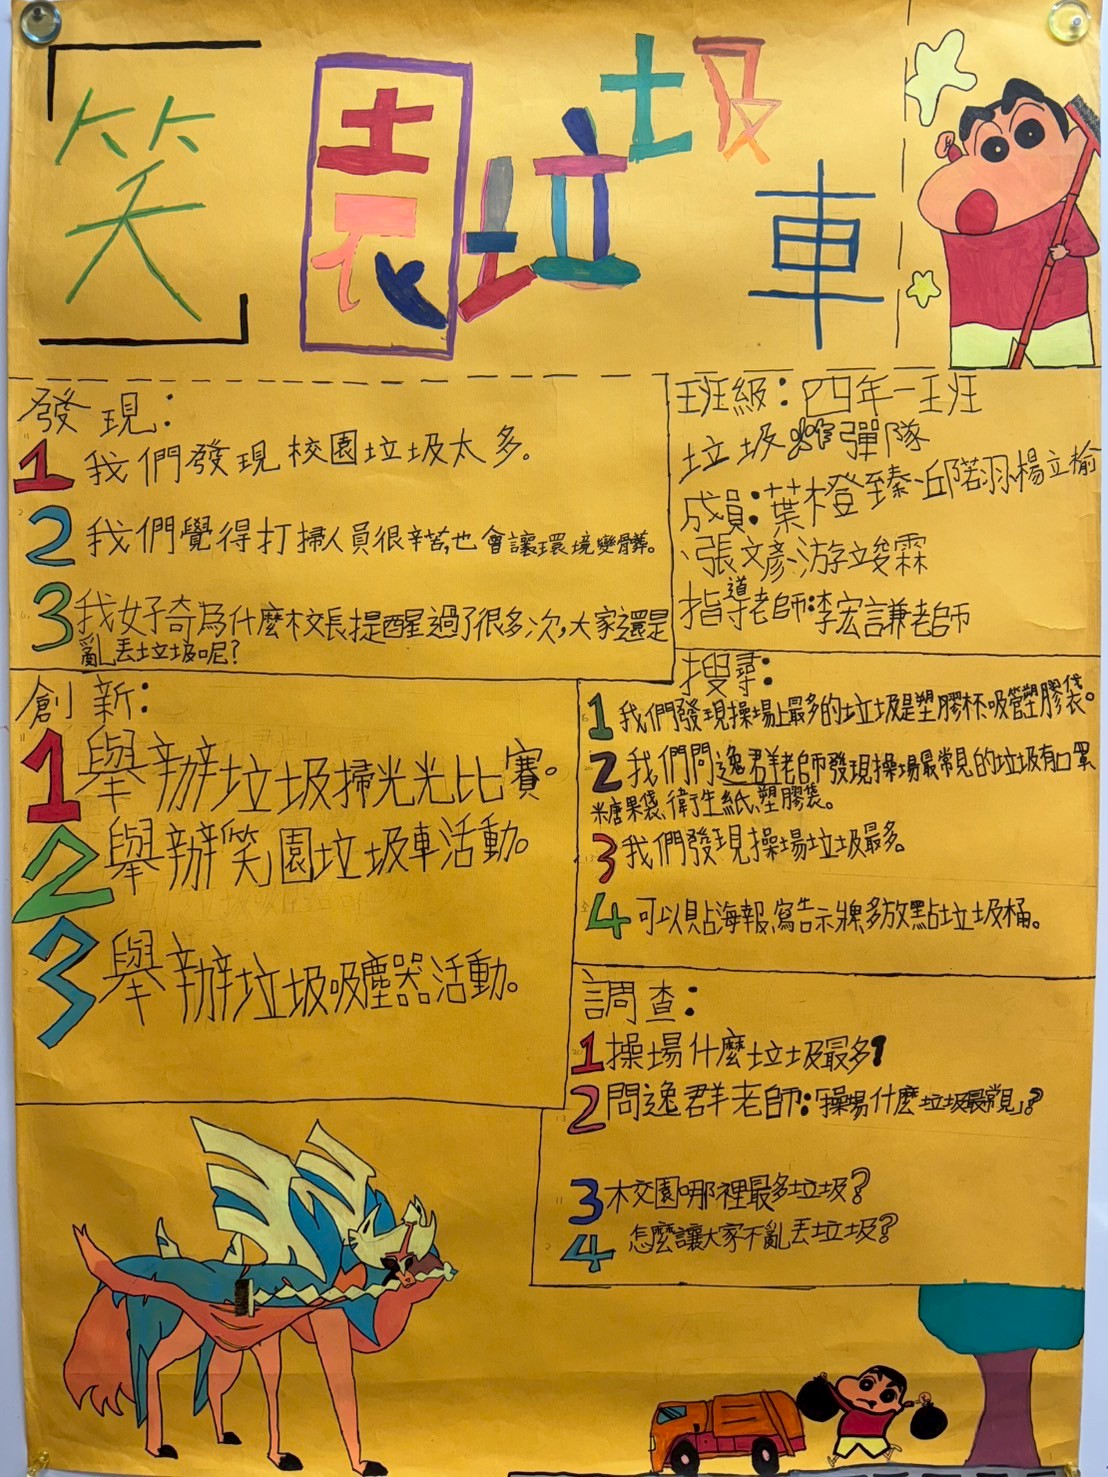 「笑」園垃圾車
發現：
1 我們發現校園垃圾太多。
2 我們覺得打掃人員很辛苦，也會讓環境變髒。
3 我好奇為什麼校長提醒過了很多次，大家還是
亂丟垃圾呢？
班級：四年一班
垃圾炸彈隊
成員：葉橙臻、邱若羽、楊立榆
、張文彥、游竣霖
指導老師：李宏謙老師
創新：
1 舉辦垃圾掃光光比賽。
2 舉辦「笑」園垃圾車活動。
3 舉辦垃圾吸塵器活動。
搜尋：
1 我們發現操場上最多的垃圾是塑膠杯、吸管、塑膠袋。
2 我們問逸群老師發現操場最常見的垃圾有口罩
糖果袋、衛生紙、塑膠袋。
3 我們發現操場垃圾最多。
4 可以貼海報、寫告示牌、多放點垃圾桶。
調查：
1 操場什麼垃圾最多？
2 問逸群老師：「操場什麼垃圾最常見」？
3 校園哪裡最多垃圾？
4 怎麼讓大家不亂丟垃圾？